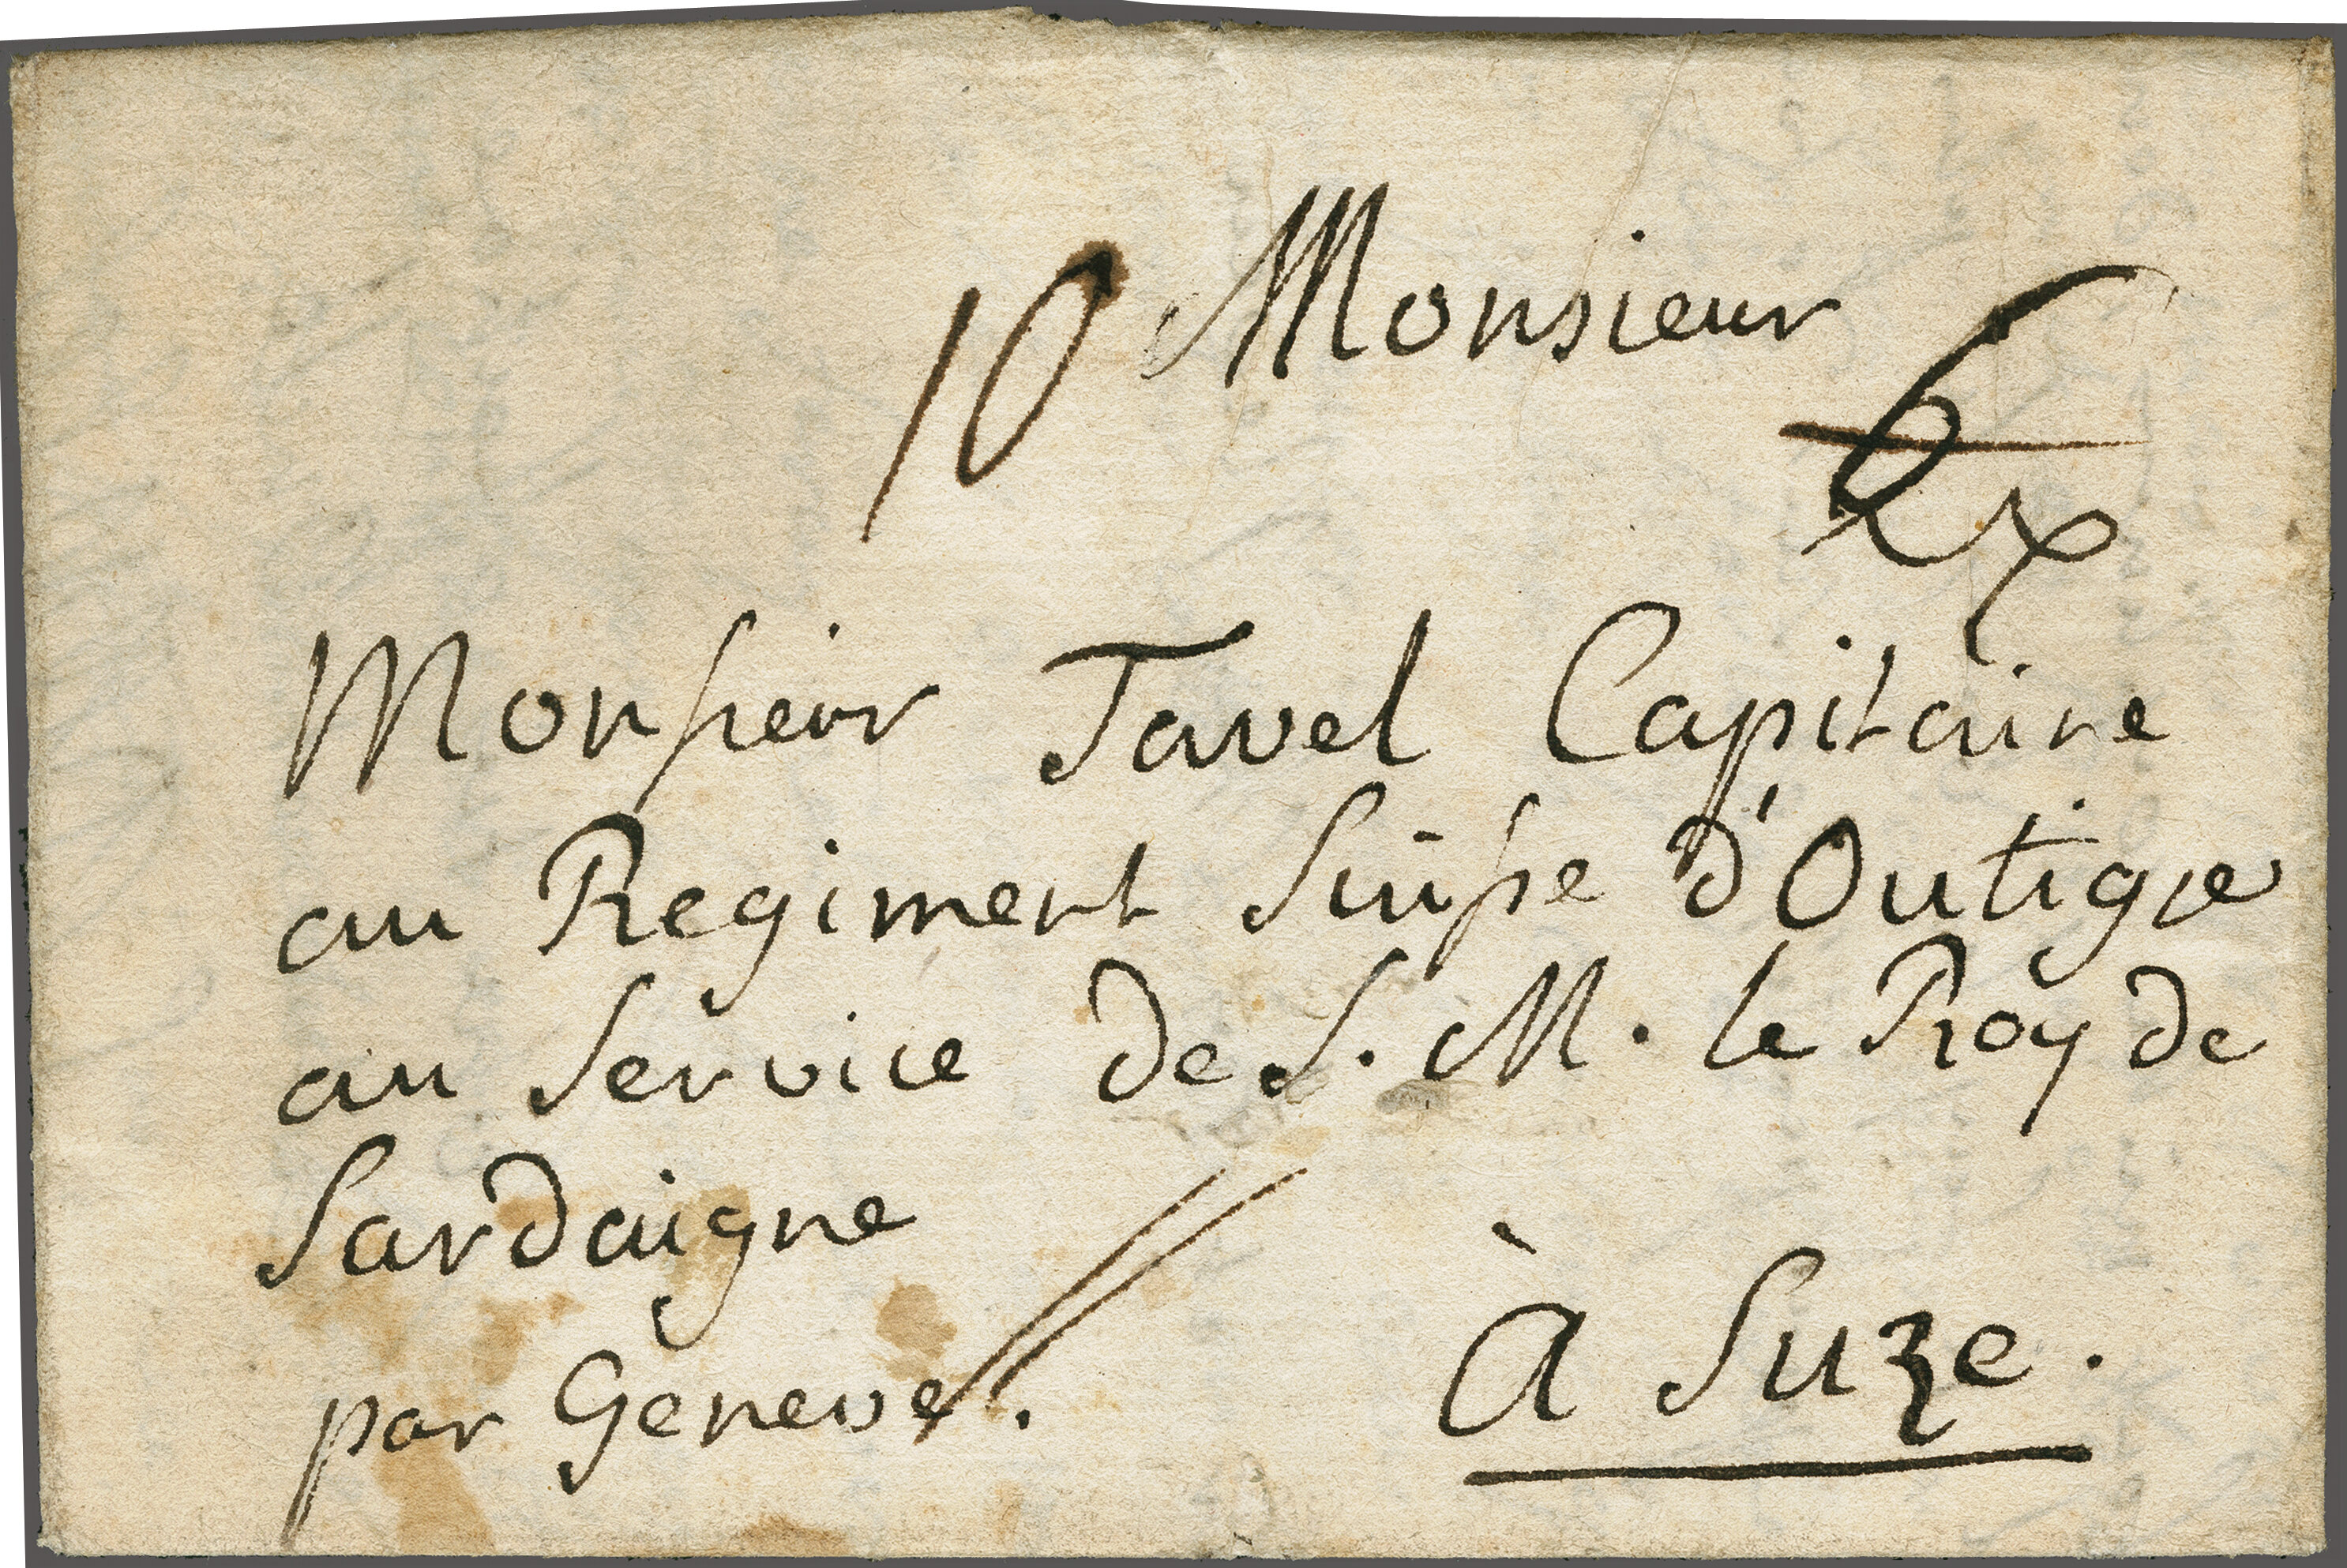 10 Monsieur
Monsieur Tavel Capitaine
au Regiment Suisse d'Outigje
au Service de S. M. le Roy de
Sardaigne
par Geneve.
à Suze.